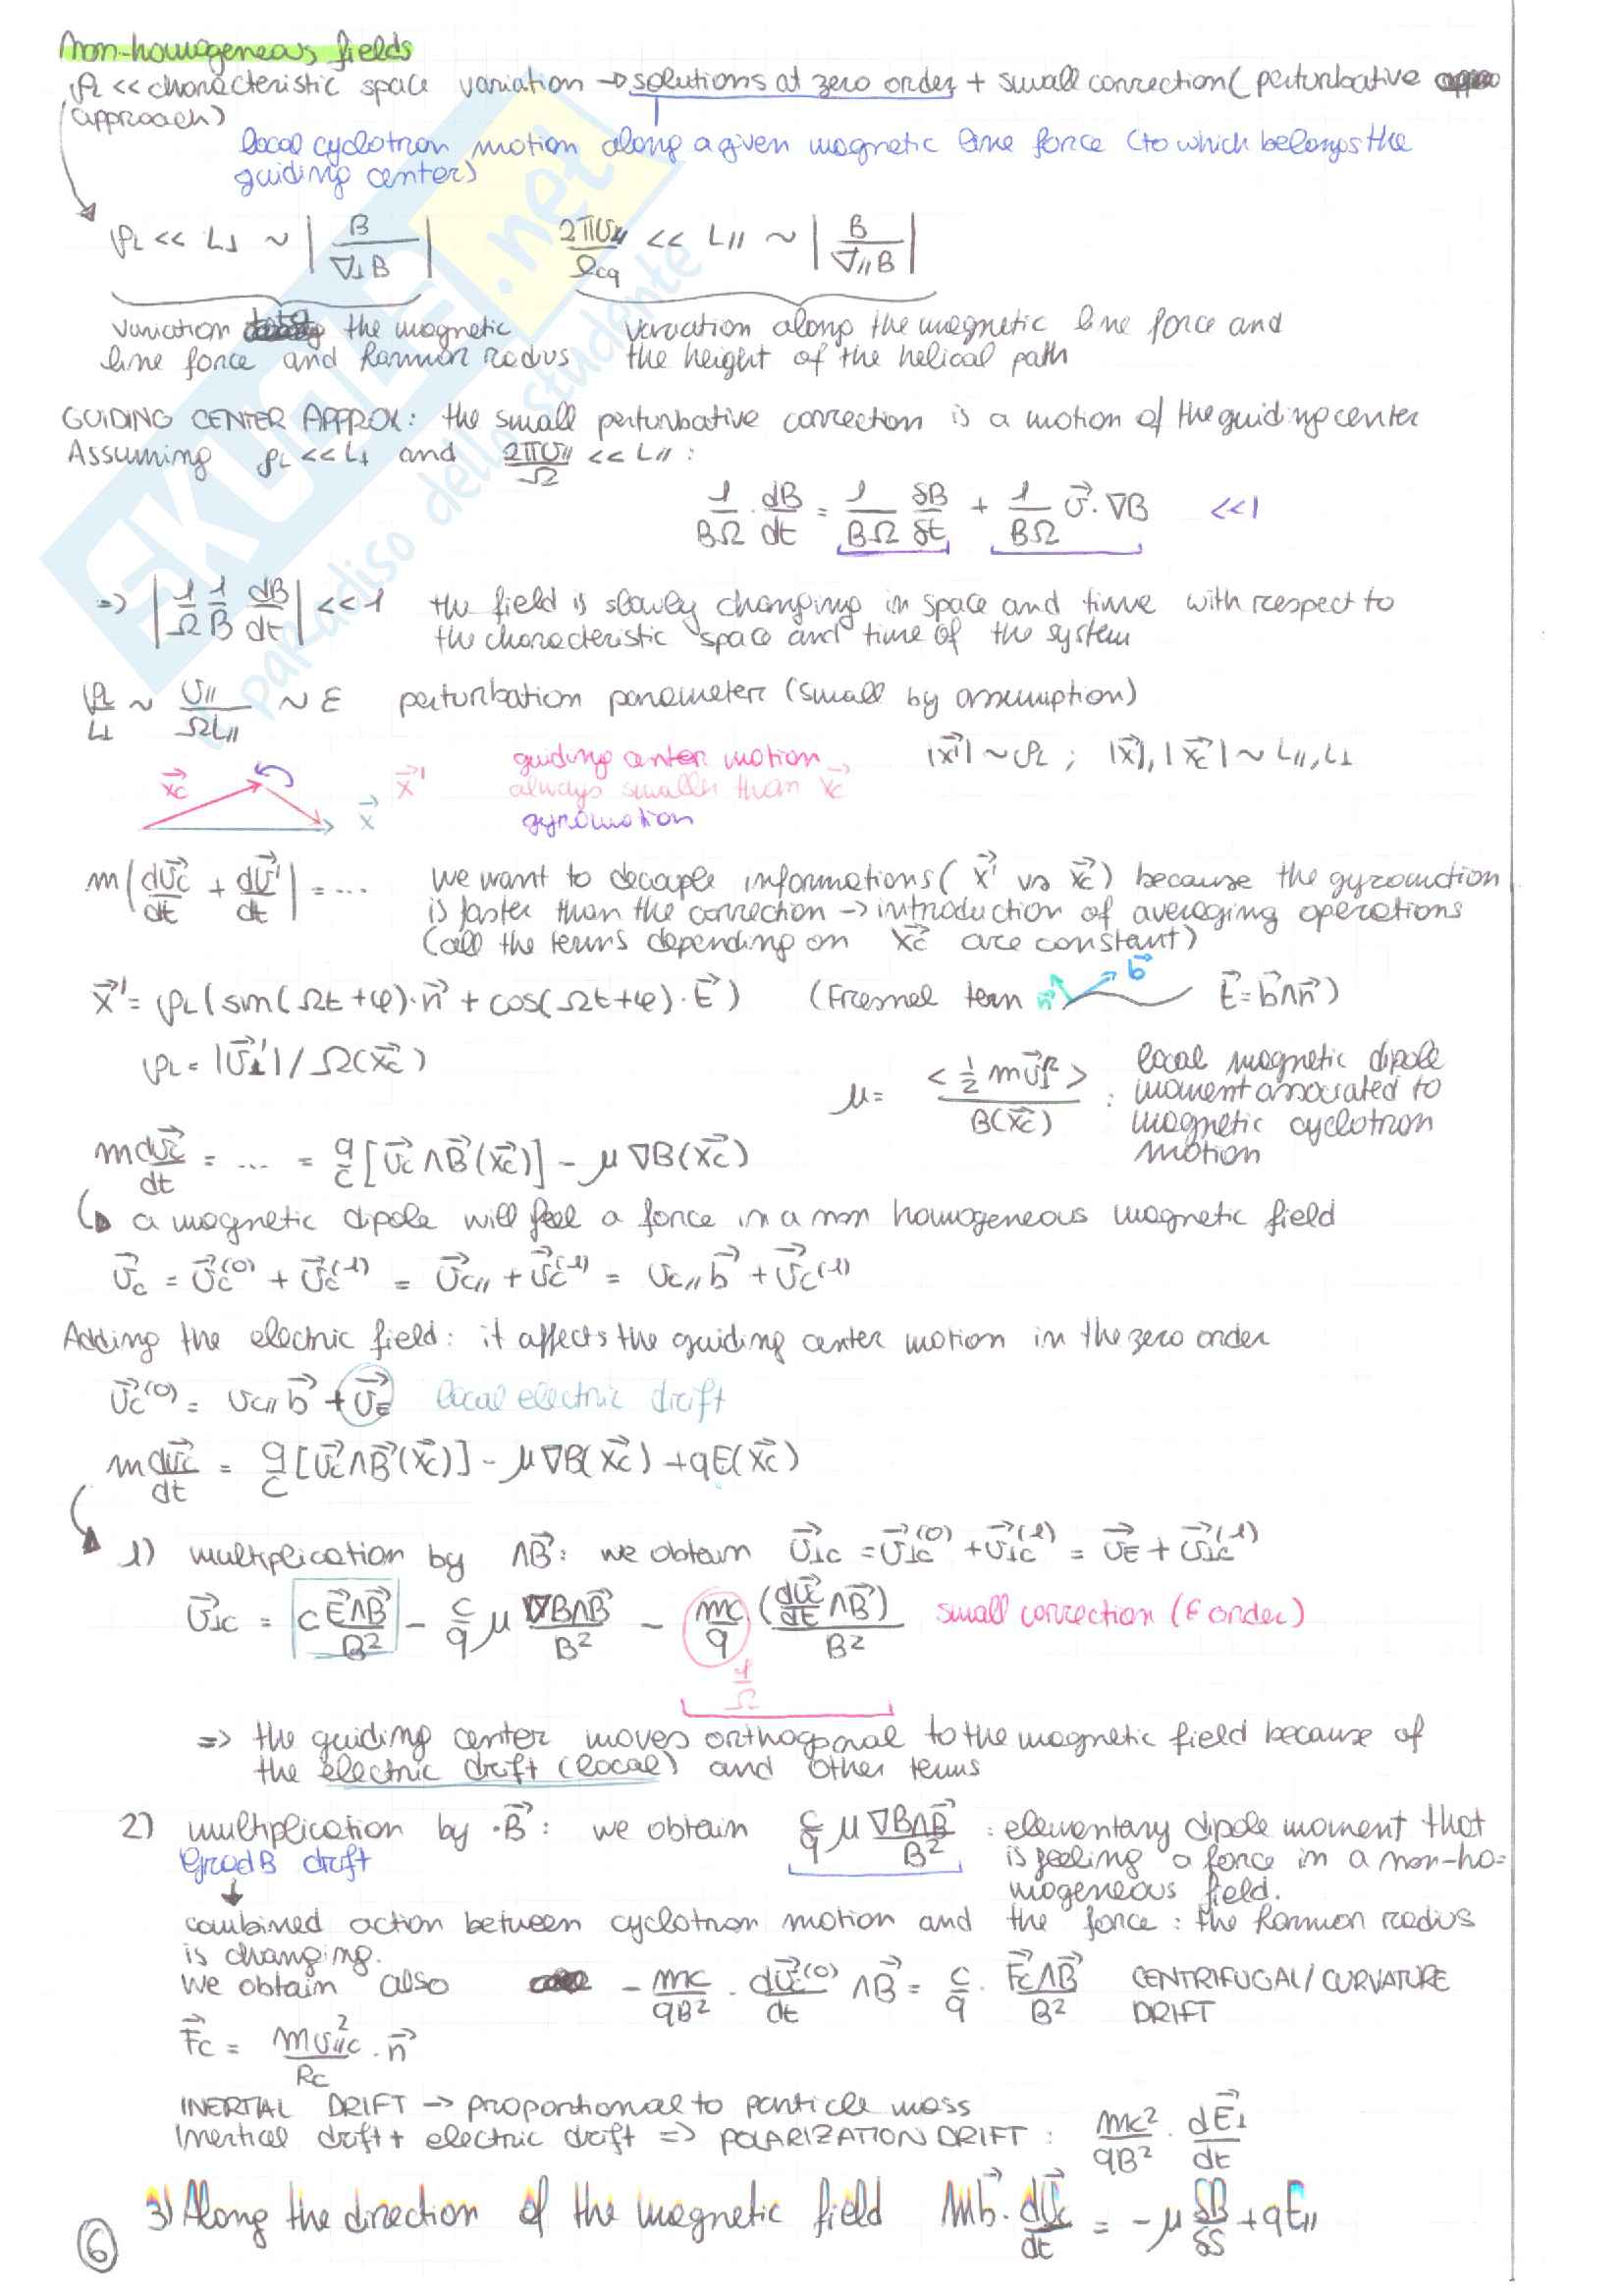 Non-homogeneous fields
ρL << characteristic space variation → solutions at zero order + small correction (perturbative
approach)
local cyclotron motion along a given magnetic line force (to which belongs the
guiding center)
ρL << L⊥ ~ |B/∇⊥B| 2πv∥/Ωcq << L∥ ~ |B/∇∥B|
variation the magnetic variation along the magnetic line force and
line force and Larmor radius the height of the helical path
GUIDING CENTER APPROX: the small perturbative correction is a motion of the guiding center
Assuming ρL << L⊥ and 2πv∥/Ω << L∥ :
1/BΩ · dB/dt = 1/BΩ δB/δt + 1/BΩ v⃗·∇B <<1
=> |1/Ω 1/B dB/dt| << 1 the field is slowly changing in space and time with respect to
the characteristic space and time of the system
ρL/L⊥ ~ v∥/ΩL∥ ~ ε perturbation parameter (small by assumption)
|x⃗'| ~ ρL ; |x⃗|, |x⃗c| ~ L∥, L⊥
x⃗c x⃗' x⃗
guiding center motion
always smaller than x⃗c
gyromotion
m(dv⃗c/dt + dv⃗'/dt) = ... we want to decouple informations (x⃗' vs x⃗c) because the gyromotion
is faster than the correction → introduction of averaging operations
(all the terms depending on x⃗c are constant)
x⃗' = ρL(sin(Ωt+φ)·n⃗ + cos(Ωt+φ)·t⃗) (Fresnel tern n⃗ b⃗ t⃗=b⃗∧n⃗)
ρL = |v⃗⊥'| / Ω(x⃗c)
μ = <½ m v⃗⊥'²> / B(x⃗c) : local magnetic dipole
moment associated to
magnetic cyclotron
motion
m dv⃗c/dt = ... = q/c [v⃗c ∧ B⃗(x⃗c)] - μ∇B(x⃗c)
↳ a magnetic dipole will feel a force in a non homogeneous magnetic field
v⃗c = v⃗c⁽⁰⁾ + v⃗c⁽¹⁾ = v⃗c∥ + v⃗c⁽¹⁾ = vc∥ b⃗ + v⃗c⁽¹⁾
Adding the electric field: it affects the guiding center motion in the zero order
v⃗c⁽⁰⁾ = vc∥ b⃗ + v⃗E local electric drift
m dv⃗c/dt = q/c [v⃗c∧B⃗(x⃗c)] - μ∇B(x⃗c) + qE(x⃗c)
1) multiplication by ∧B⃗: we obtain v⃗⊥c = v⃗⊥c⁽⁰⁾ + v⃗⊥c⁽¹⁾ = v⃗E + v⃗⊥c⁽¹⁾
v⃗⊥c = c E⃗∧B⃗/B² - c/q μ ∇B∧B⃗/B² - mc/q (dv⃗c/dt ∧B⃗)/B² small correction (ε order)
1/Ω
=> the guiding center moves orthogonal to the magnetic field because of
the electric drift (local) and other terms
2) multiplication by ·B⃗: we obtain c/q μ ∇B∧B⃗/B² : elementary dipole moment that
GradB drift is feeling a force in a non-ho=
mogeneous field.
combined action between cyclotron motion and the force: the Larmor radius
is changing.
We obtain also - mc/qB² · dv⃗c⁽⁰⁾/dt ∧B⃗ = c/q · F⃗c∧B⃗/B² CENTRIFUGAL/CURVATURE
DRIFT
F⃗c = mv²∥c/Rc · n⃗
INERTIAL DRIFT → proportional to particle mass
Inertical drift + electric drift => POLARIZATION DRIFT : mc²/qB² · dE⃗⊥/dt
3) Along the direction of the magnetic field mb⃗· dv⃗c/dt = -μ δB/δS + qE∥
6
SKUOLA.net
il paradiso dello studente